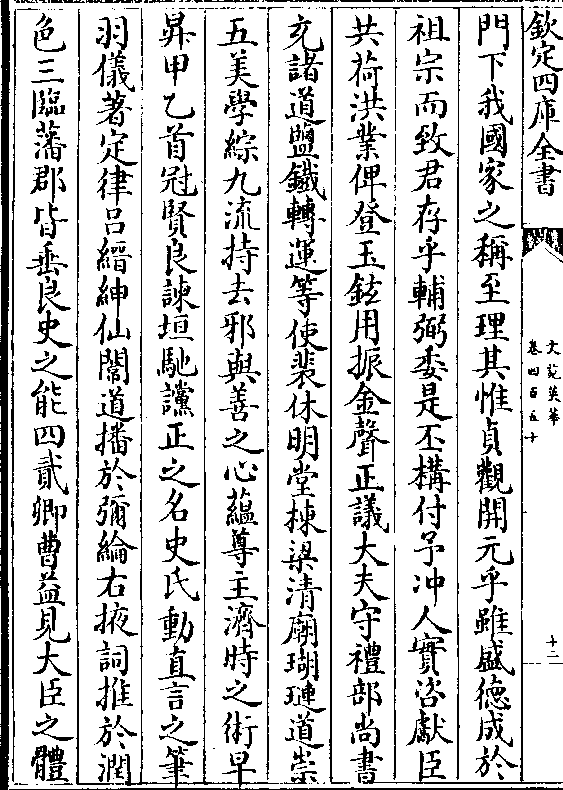 欽定四庫全書
文苑英華
卷四百五十
十二
門下我國家之稱至理其惟貞觀開元乎雖盛德成於
祖宗而致君存乎輔弼委是丕構付予冲人實咨獻臣
共荷洪業俾登玉鉉用振金聲正議大夫守禮部尚書
充諸道鹽鐵轉運等使裴休明堂棟梁清廟瑚璉道崇
五美學綜九流持去邪與善之心藴尊主濟時之術早
昇甲乙首冠賢良諫垣馳讜正之名史氏動直言之筆
羽儀著定律吕縉紳仙閣道播於彌綸右掖詞推於潤
色三臨藩郡皆垂良史之能四貳卿曹益見大臣之體